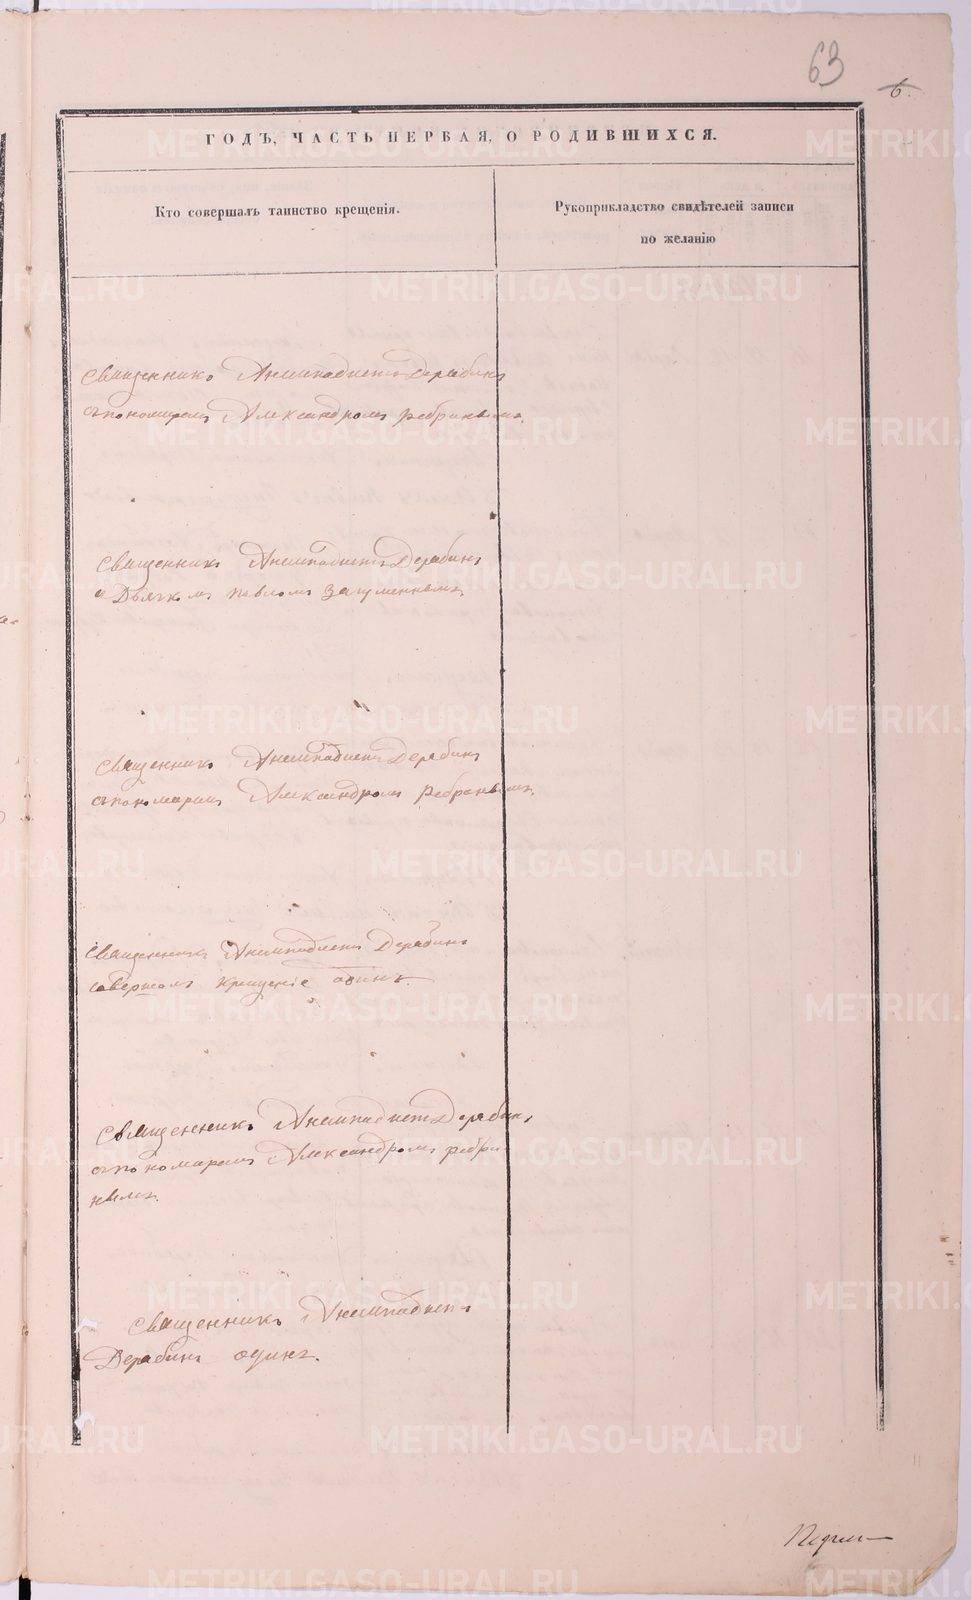 63
6.
ГОДЪ, ЧАСТЬ ПЕРВАЯ, О РОДИВШИХСЯ.
Кто совершалъ таинство крещенія.
Рукоприкладство свидѣтелей записи
по желанію
Священникъ Анемподистъ Дерябинъ
съ пономаремъ Александромъ Ребринымъ.
Священникъ Анемподистъ Дерябинъ
с Дьячкомъ Павломъ Загуменнымъ
Священникъ Анемподистъ Дерябинъ
съ пономаремъ Александромъ Ребринымъ.
Священникъ Анемподистъ Дерябинъ
совершалъ крещеніе одинъ.
Священникъ Анемподистъ Дерябинъ
съ пономаремъ Александромъ Ребри-
нымъ.
Священникъ Анемподистъ
Дерябинъ одинъ.
METRIKI.GASO-URAL.RU